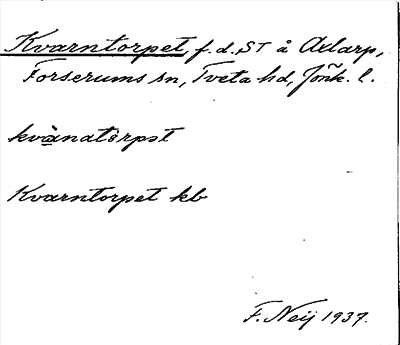 Kvarntorpet, f. d. ST å Axlarp,
Forserums sn, Tveta hd, Jönk. l.
kvànatårpət
Kvarntorpet kb
F. Neij 1937.